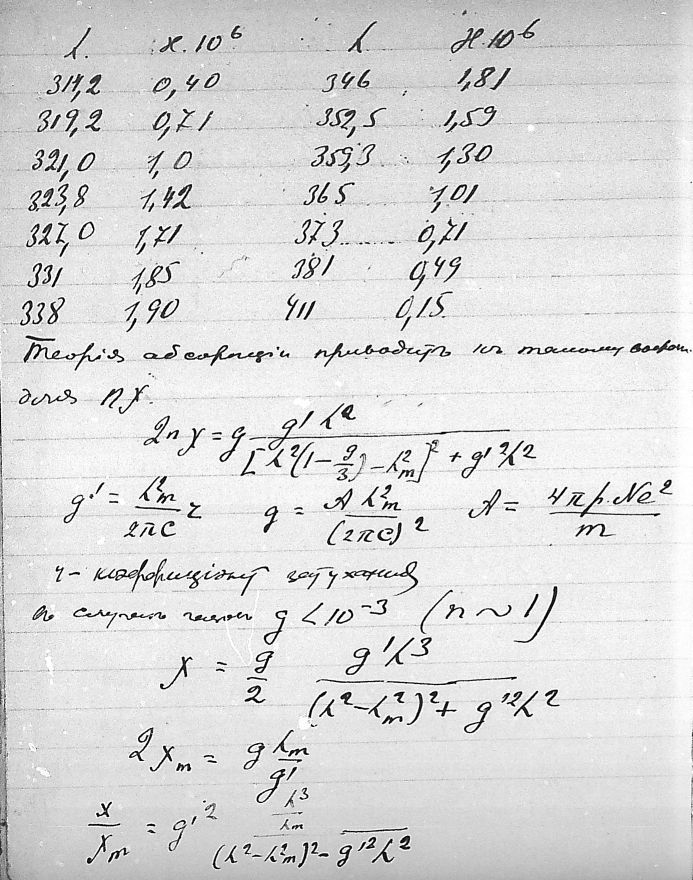 λ. ϰ.10⁶ λ ϰ.10⁶
314,2 0,40 346 1,81
319,2 0,71 352,5 1,59
321,0 1,0 359,3 1,30
323,8 1,42 365 1,01
327,0 1,71 373 0,71
331 1,85 381 0,49
338 1,90 411 0,15
Теорія абсорпціи приводитъ къ такому
для nϰ.
2nϰ = g g'λ² / [λ²(1 - g/3) - λ²m]² + g'²λ²
g' = λ²m / 2πc r g = Aλ²m / (2πc)² A = 4πp.Ne² / m
r - коэффиціэнт затуханія
въ случаѣ газовъ g < 10⁻³ (n ~ 1)
ϰ = g/2 g'λ³ / (λ² - λ²m)² + g'²λ²
2ϰm = g λm / g'
ϰ/ϰm = g'² λ³/λm / (λ² - λ²m)² - g'²λ²